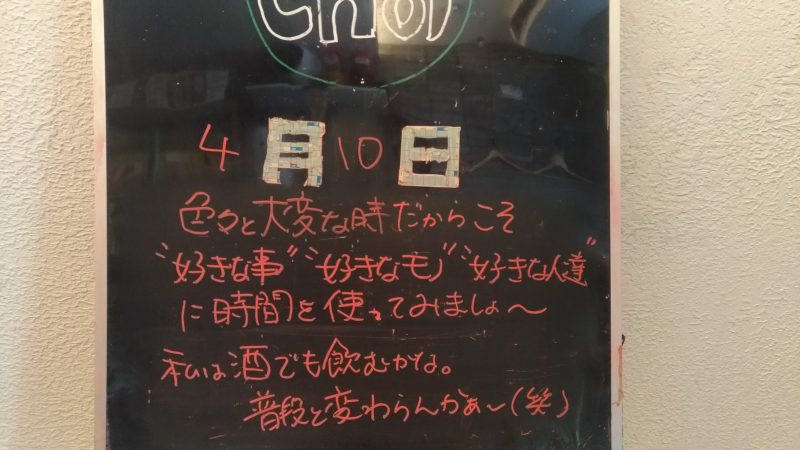 choi
4月10日
色々と大変な時だからこそ
〝好きな事〟〝好きなモノ〟〝好きな人達〟
に時間を使ってみましょ〜
私は酒でも飲むかな。
普段と変わらんかぁ〜(笑)